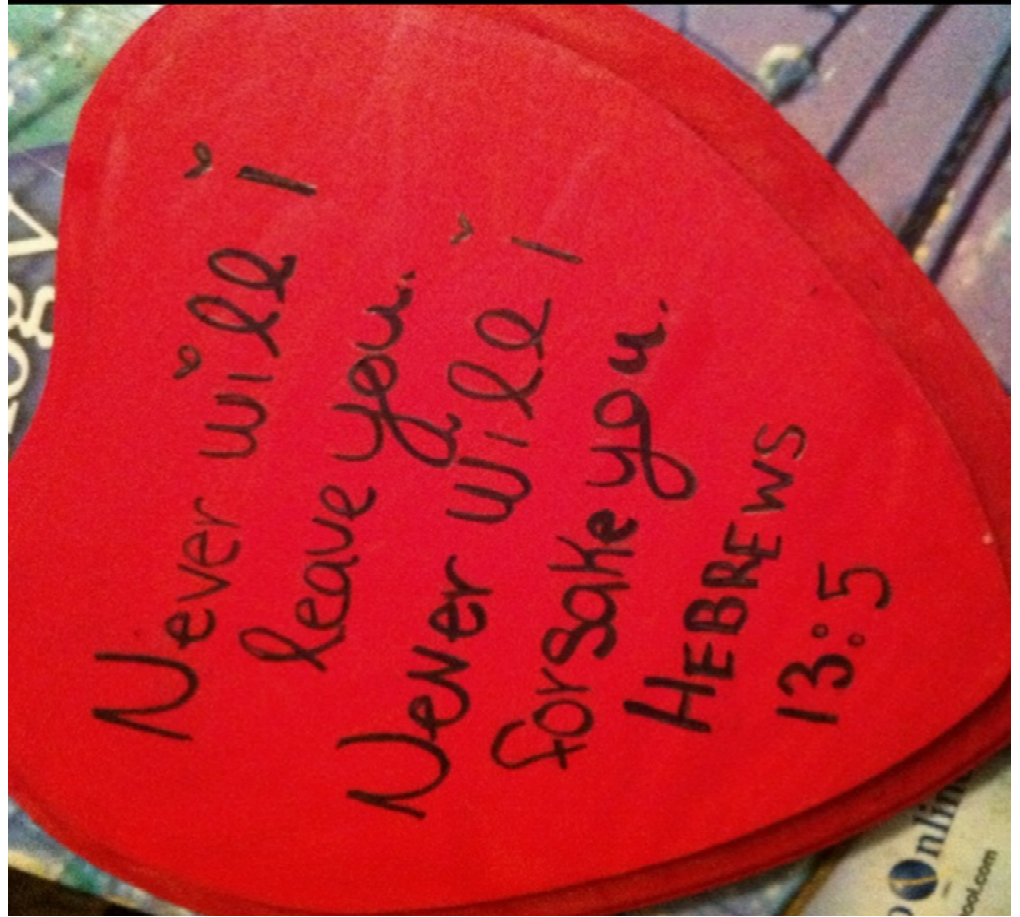 Never will I
leave you.
Never will I
forsake you.
HEBREWS
13:5
nline
ool.com